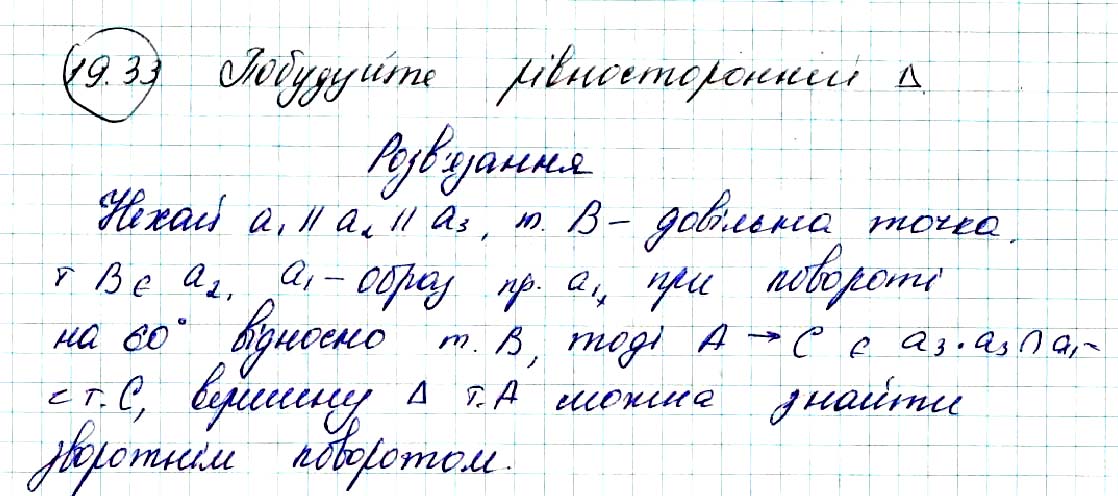 19.33 Побудуйте рівносторонній Δ
Розв'язання
Нехай a₁ || a₂ || a₃, т. B – довільна точка.
т B є a₂, a₁ – образ пр. a₁, при повороті
на 60° відносно т. B, тоді A → C є a₃. a₃ ∩ a₁ –
= т. C, вершину Δ т. A можна знайти
зворотнім поворотом.